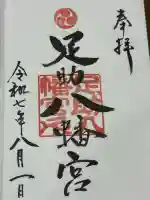 奉拝
足助八幡宮
足助八幡宮
令和七年八月一日